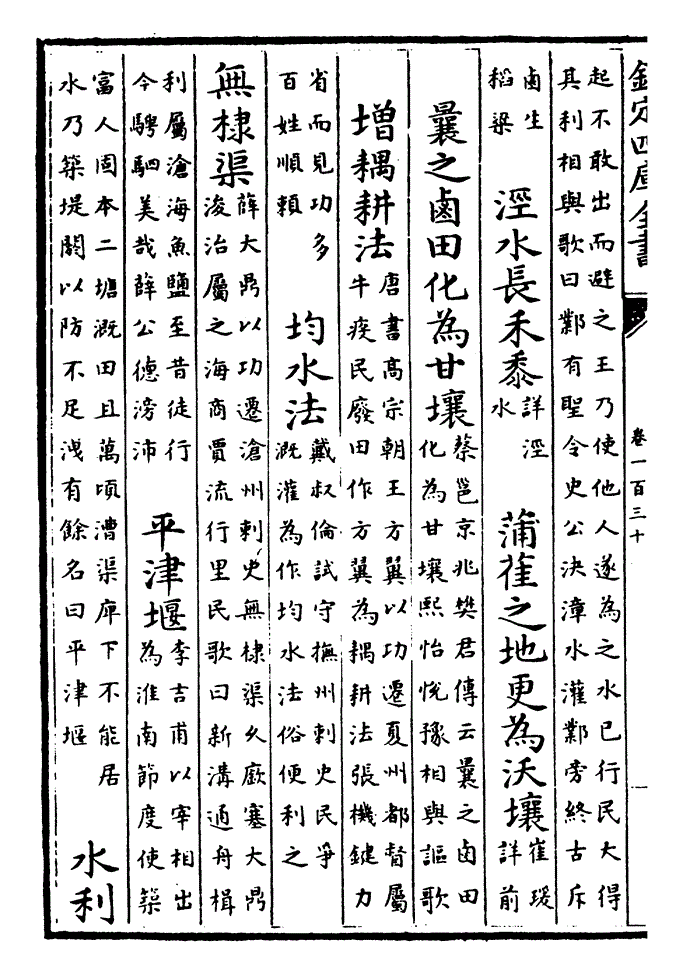 欽定四庫全書
卷一百三十
起不敢出而避之王乃使他人遂為之水已行民大得
其利相與歌曰鄴有聖令史公決漳水灌鄴旁終古斥
鹵生
稻粱
涇水長禾黍
詳涇
水
蒲萑之地更為沃壤
崔瑗
詳前
曩之鹵田化為甘壤
蔡邕京兆樊君傳云曩之鹵田
化為甘壤熙怡悅豫相與謳歌
增耦耕法
唐書高宗朝王方翼以功遷夏州都督屬
牛疫民廢田作方翼為耦耕法張機鍵力
省而見功多
百姓順賴
均水法
戴叔倫試守撫州刺史民爭
溉灌為作均水法俗便利之
無棣渠
薛大鼎以功遷滄州刺史無棣渠久廞塞大鼎
浚治屬之海商賈流行里民歌曰新溝通舟楫
利屬滄海魚鹽至昔徒行
今騁駟美哉薛公德滂沛
平津堰
李吉甫以宰相出
為淮南節度使築
富人固本二塘溉田且萬頃漕渠庳下不能居
水乃築堤閼以防不足洩有餘名曰平津堰
水利